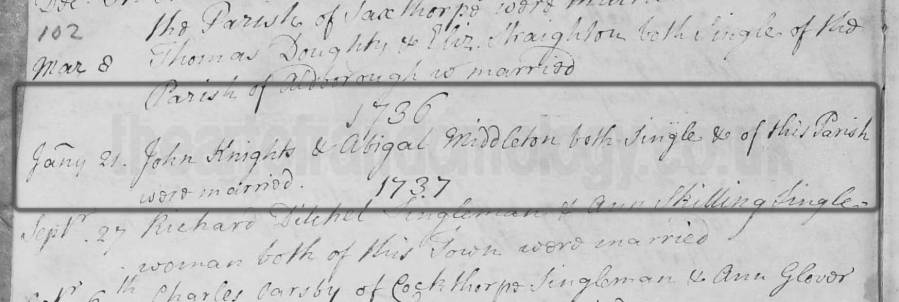 the Parish of Saxthorpe were
102
Mar 8 Thomas Doughty & Eliz. Straighton both Single of the
Parish of were married
1736
Jany 21. John Knights & Abigal Middleton both Single & of this Parish
were married.
1737
Septr. 27 Richard Ditchel Singleman & Ann Skilling Single-
woman both of this Town were married
6th Charles Carsby of Cockthorpe Singleman & Ann Glover